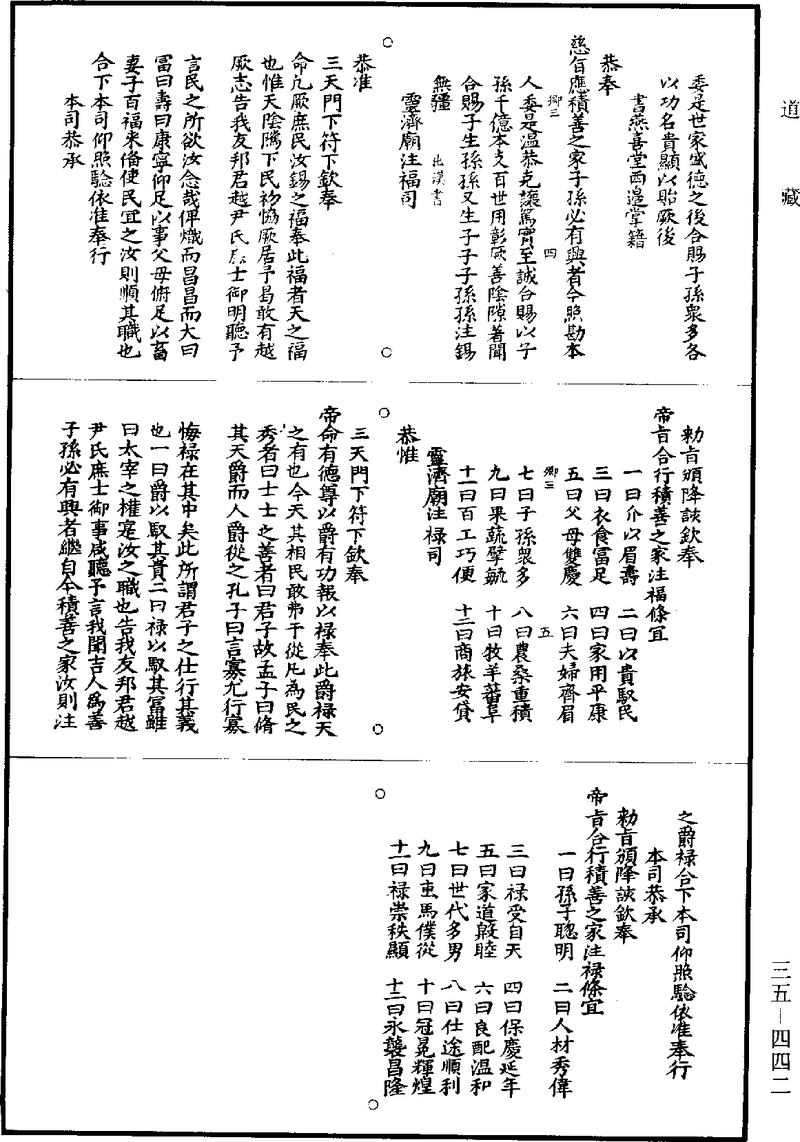 道藏
委是世家盛德之後合賜子孫衆多各
以功名貴顯以貽厥後
書燕喜堂西邊掌籍
恭奉
慈旨應積善之家子孫必有興者今照勘本
鄉三 四
人委是溫恭克讓篤實至誠合賜以子
孫千億本支百世用彰厥善陰隲著聞
合賜子生孫孫又生子子子孫孫注錫
無疆 出漢書
靈濟廟注福司
恭准
三天門下符下欽奉
命凡厥庶民汝錫之福奉此福者天之福
也惟天陰隲下民初恊厥居予曷敢有越
厥志告我友邦君越尹氏庶士御明聽予
言民之所欲汝念哉俾熾而昌昌而大曰
富曰壽曰康寧仰足以事父母俯足以畜
妻子百福来俻使民宜之汝則順其職也
合下本司仰照驗依准奉行
本司恭承
勑旨頒降該欽奉
帝旨合行積善之家注福條宜
一曰介以眉壽 二曰以貴馭民
三曰衣食富足 四曰家用平康
五曰父母雙慶 六曰夫婦齊眉
鄉三 五
七曰子孫衆多 八曰農桑重積
九曰果蔬擘毓 十曰牧羊蕃阜
十一曰百工巧便 十二曰商旅安貸
靈濟廟注禄司
恭惟
三天門下符下欽奉
帝命有德尊以爵有功報以禄奉此爵禄天
之有也今天其相民敢弗干從凡為民之
秀者曰士士之善者曰君子故孟子曰脩
其天爵而人爵從之孔子曰言寡尤行寡
悔禄在其中矣此所謂君子之仕行其義
也一曰爵以馭其貴二曰禄以馭其富雖
曰太宰之權寔汝之職也告我友邦君越
尹氏庶士御事咸聽予言我聞吉人為善
子孫必有興者繼自今積善之家汝則注
之爵禄合下本司仰照驗依准奉行
本司恭承
勑旨頒降該欽奉
帝旨合行積善之家注禄條宜
一曰孫子聰明 二曰人材秀偉
三曰禄受自天 四曰保慶延年
五曰家道敦睦 六曰良配温和
七曰世代多男 八曰仕途順利
九曰車馬僕從 十曰冠冕輝煌
十一曰禄崇秩顯 十二曰永襲昌隆
三五—四四二